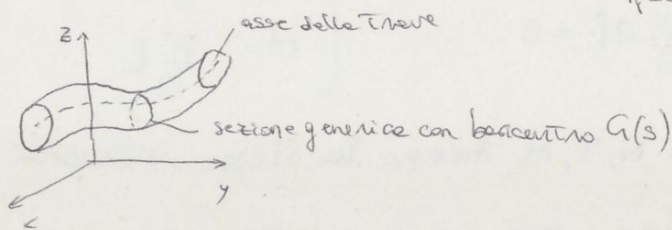 asse della trave
z
sezione generica con baricentro G(s)
y
x